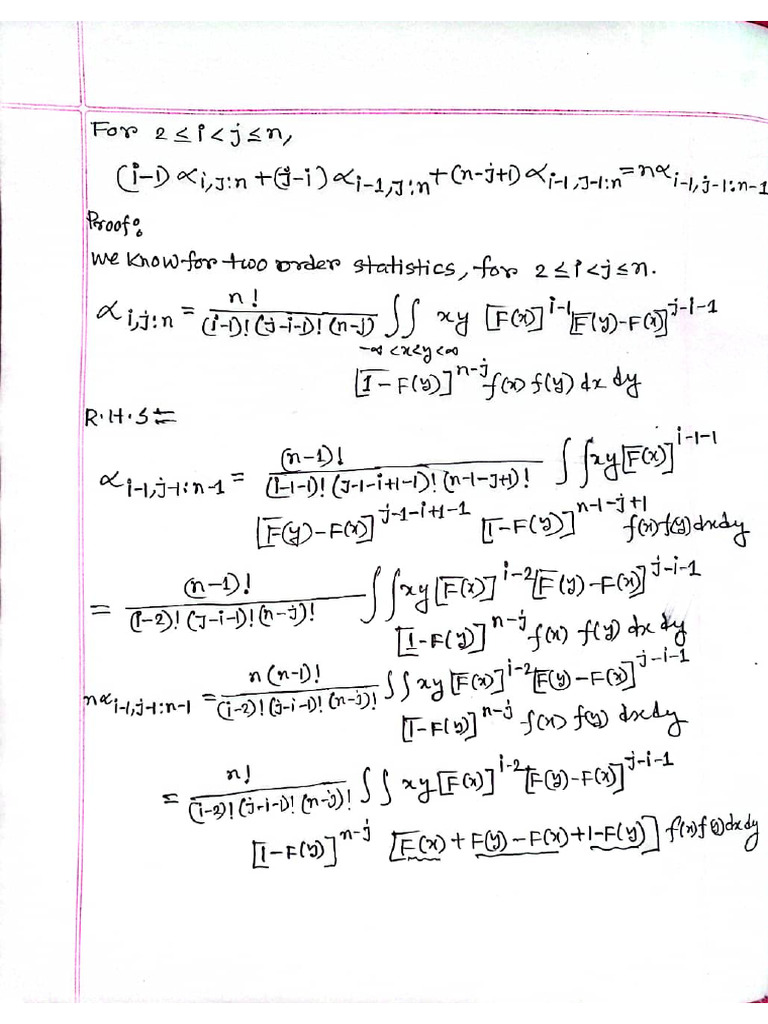 For 2 ≤ i < j ≤ n,
(i-1) α_{i,j:n} + (j-i) α_{i-1,j:n} + (n-j+1) α_{i-1,j-1:n} = nα_{i-1,j-1:n-1}
Proof:
We know for two order statistics, for 2 ≤ i < j ≤ n.
α_{i,j:n} = n! / (i-1)! (j-i-1)! (n-j) ∫∫_{-∞<x<y<∞} xy [F(x)]^{i-1} [F(y)-F(x)]^{j-i-1}
[1-F(y)]^{n-j} f(x) f(y) dx dy
R.H.S =
α_{i-1,j-1:n-1} = (n-1)! / (i-1-1)! (j-1-i+1-1)! (n-1-j+1)! ∫∫ xy [F(x)]^{i-1-1}
[F(y)-F(x)]^{j-1-i+1-1} [1-F(y)]^{n-1-j+1} f(x) f(y) dx dy
= (n-1)! / (i-2)! (j-i-1)! (n-j)! ∫∫ xy [F(x)]^{i-2} [F(y)-F(x)]^{j-i-1}
[1-F(y)]^{n-j} f(x) f(y) dx dy
nα_{i-1,j-1:n-1} = n(n-1)! / (i-2)! (j-i-1)! (n-j)! ∫∫ xy [F(x)]^{i-2} [F(y)-F(x)]^{j-i-1}
[1-F(y)]^{n-j} f(x) f(y) dx dy
= n! / (i-2)! (j-i-1)! (n-j)! ∫∫ xy [F(x)]^{i-2} [F(y)-F(x)]^{j-i-1}
[1-F(y)]^{n-j} [F(x) + F(y) - F(x) + 1-F(y)] f(x) f(y) dx dy